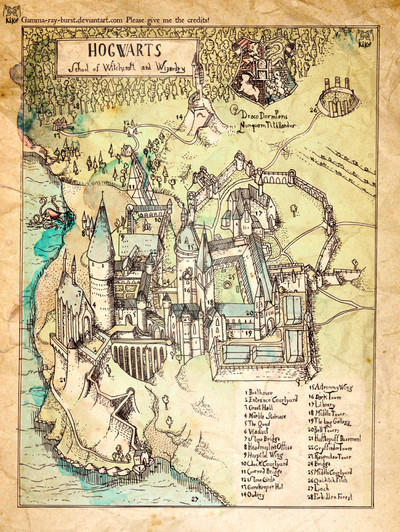 KIKO
Gamma-ray-burst.deviantart.com Please give me the credits!
KIKO
HOGWARTS
School of Witchcraft and Wizardry
Draco Dormiens
Nunquam Titillandus
1 Boathouse
2 Entrance Courtyard
3 Great Hall
4 Marble Staircase
5 The Quad
6 Viaduct
7 Stone Bridge
8 Headmaster Office
9 Hospital Wing
10 Clock Courtyard
11 Covered Bridge
12 Stone Circle
13 Gamekeeper Hut
14 Owlery
15 Astronomy Wing
16 Dark Tower
17 Library
18 Middle Tower
19 The Long Gallery
20 Bell Towers
21 Hufflepuff Basement
22 Gryffindor Tower
23 Ravenclaw Tower
24 Bridge
25 Middle Courtyard
26 Quidditch Pitch
27 Loch
28 Forbidden Forest
27